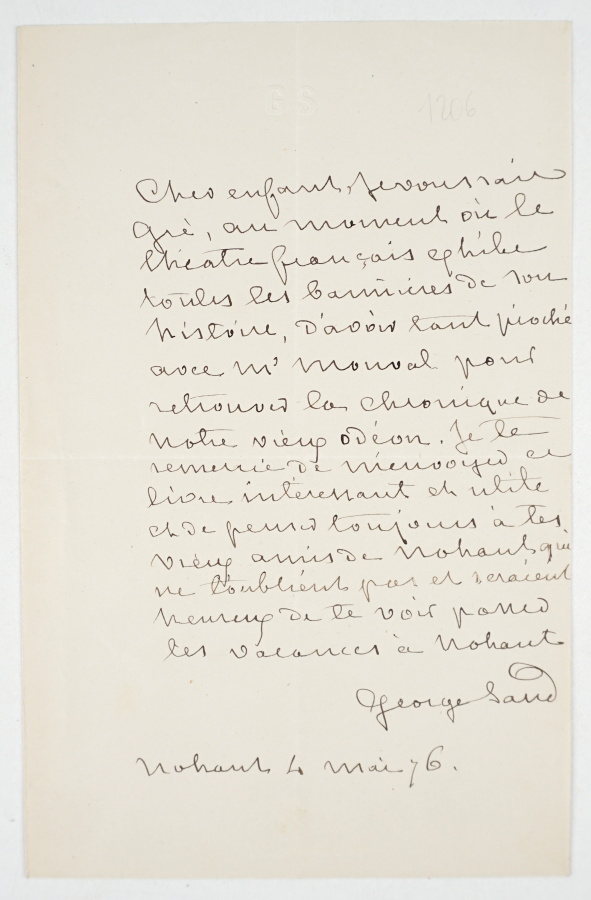 GS
1206
Cher enfant, je vous sais
gré, au moment où le
théatre français exhibe
toutes les bannières de son
histoire, d'avoir tant pioché
avec Mr Monval pour
retrouver la chronique de
notre vieux odéon. Je te
remercie de m'envoyer ce
livre intéressant et utile
et de penser toujours à tes
vieux amis de Nohant qui
ne t'oublient pas et seraient
heureux de te voir passer
les vacances à Nohant
George Sand
Nohant 4 mai 76.